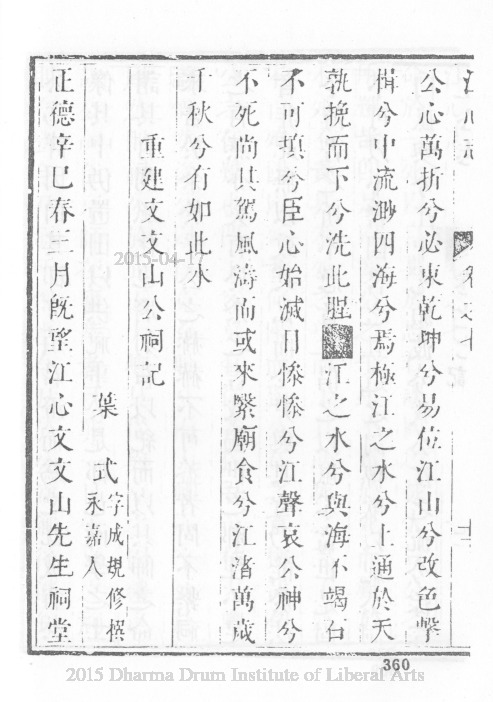 江心志 卷之十 十三
公心萬折兮必東乾坤兮易位江山兮改色擊
楫兮中流渺四海兮焉極江之水兮上通於天
孰挽而下兮洗此腥 江之水兮與海不竭石
不可填兮臣心始滅日慘慘兮江聲哀公神兮
不死尚其駕風濤而或來繄廟食兮江渚萬歲
千秋兮有如此水
重建文文山公祠記
葉式 字成規修撰永嘉人
正德辛巳春王月旣望江心文文山先生祠堂
2015-04-17
360
2015 Dharma Drum Institute of Liberal Arts